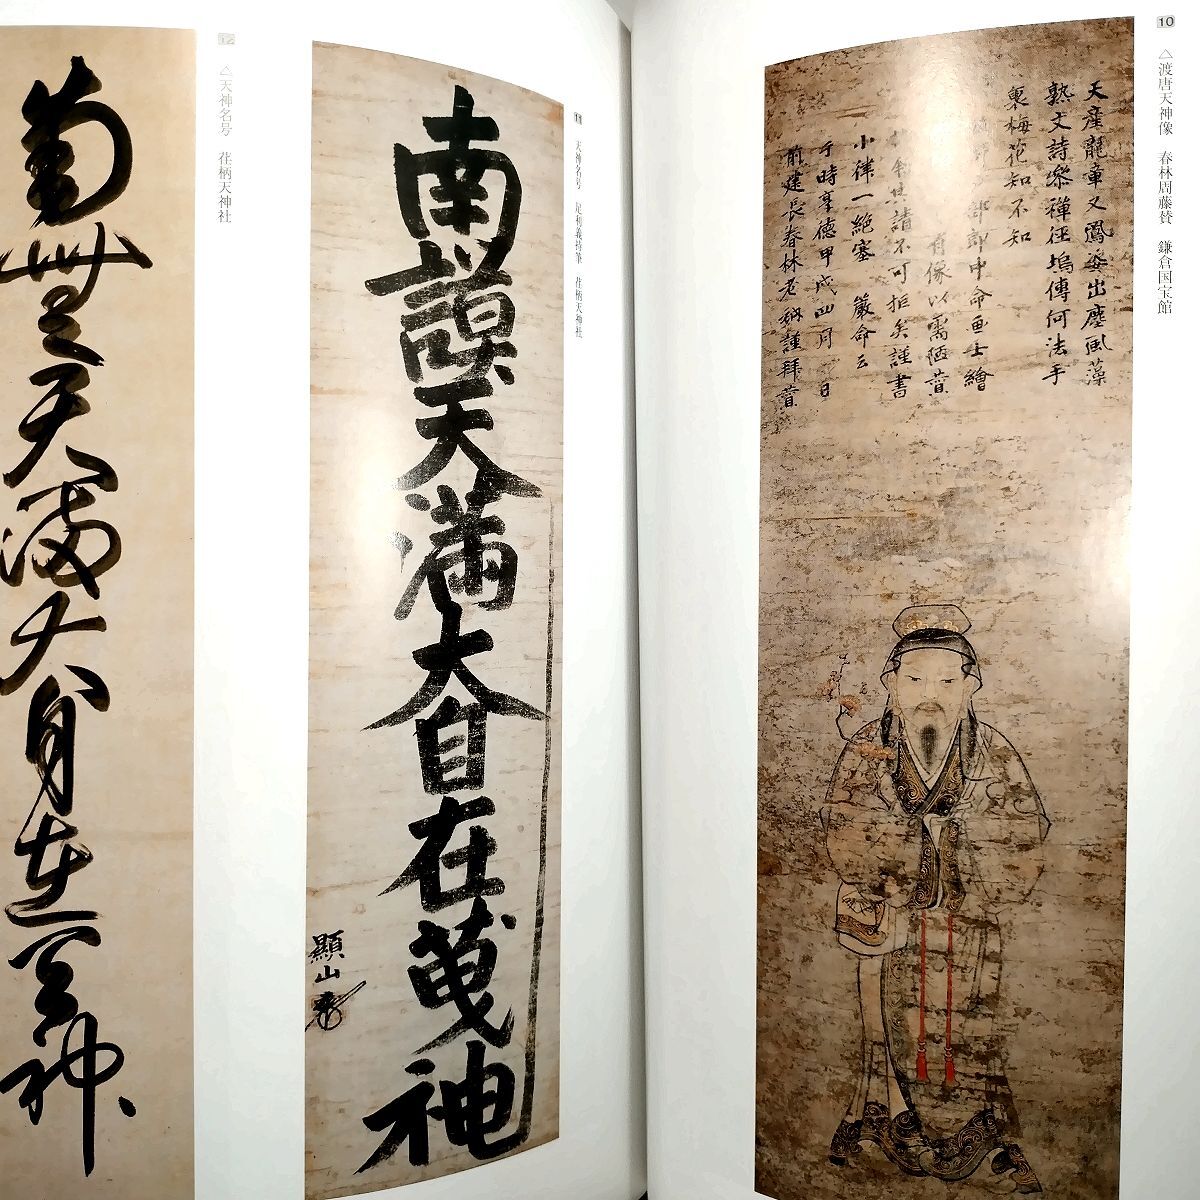 10
△渡唐天神像 春林周藤賛 鎌倉国宝館
天産龍章又鳳姿出塵風藻
熟文詩参禅径塢傳何法手
裏梅花知不知
郎中命画士繪
肖像以需陋賛
其請不可拒矣謹書
小律一絶塞 嚴命云
于時享徳甲戌四月 日
前建長春林老衲謹拜賛
11
天神名号 足利義持筆 荏柄天神社
南謨天満大自在天神
顯山
12
△天神名号 荏柄天神社
南無天満大自在天神